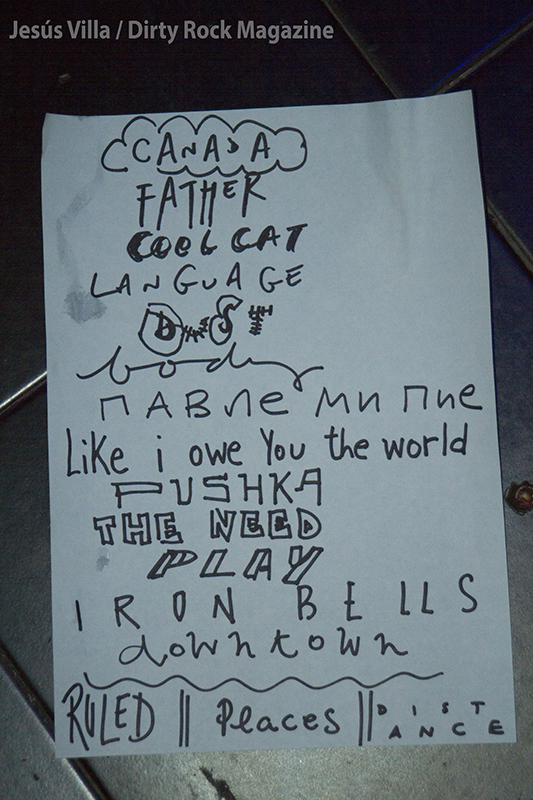 Jesús Villa / Dirty Rock Magazine
CANADA
FATHER
COOL CAT
LANGUAGE
body
ПАВЛЕ МИ ПИЕ
Like i owe You the world
PUSHKA
THE NEED
PLAY
IRON BELLS
downtown
RULED || Places || DISTANCE